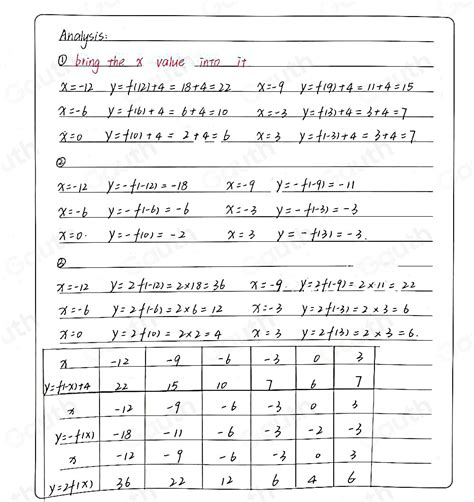 Analysis:
① bring the x value into it
x=-12 y=f(12)+4=18+4=22 x=-9 y=f(9)+4=11+4=15
x=-6 y=f(6)+4=6+4=10 x=-3 y=f(3)+4=3+4=7
x=0 y=f(0)+4=2+4=6 x=3 y=f(-3)+4=3+4=7
②
x=-12 y=-f(-12)=-18 x=-9 y=-f(-9)=-11
x=-6 y=-f(-6)=-6 x=-3 y=-f(-3)=-3
x=0. y=-f(0)=-2 x=3 y=-f(3)=-3.
②
x=-12 y=2f(-12)=2×18=36 x=-9. y=2f(-9)=2×11=22
x=-6 y=2f(-6)=2×6=12 x=-3 y=2f(-3)=2×3=6
x=0 y=2f(0)=2×2=4 x=3 y=2f(3)=2×3=6.
x -12 -9 -6 -3 0 3
y=f(-x)+4 22 15 10 7 6 7
x -12 -9 -6 -3 0 3
y=-f(x) -18 -11 -6 -3 -2 -3
x -12 -9 -6 -3 0 3
y=2f(x) 36 22 12 6 4 6